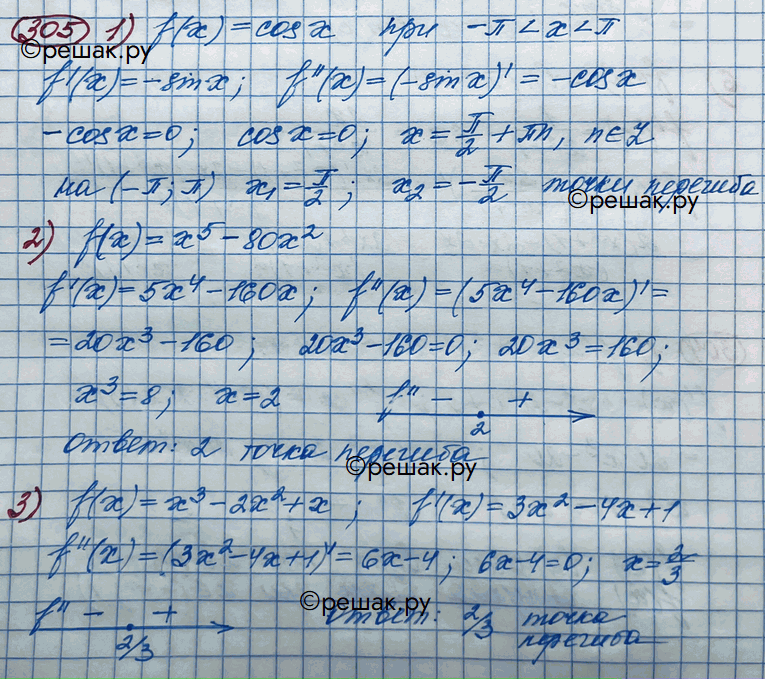 305 1) f(x) = cos x при -π < x < π
©решак.ру
f'(x) = -sin x; f''(x) = (-sin x)' = -cos x
-cos x = 0; cos x = 0; x = π/2 + πn, n ∈ Z
на (-π; π) x₁ = π/2; x₂ = -π/2 точки перегиба
©решак.ру
2) f(x) = x⁵ - 80x²
f'(x) = 5x⁴ - 160x; f''(x) = (5x⁴ - 160x)' =
= 20x³ - 160; 20x³ - 160 = 0; 20x³ = 160;
x³ = 8; x = 2 f'' - +
2
ответ: 2 точка перегиба
©решак.ру
3) f(x) = x³ - 2x² + x; f'(x) = 3x² - 4x + 1
f''(x) = (3x² - 4x + 1)' = 6x - 4; 6x - 4 = 0; x = 2/3
©решак.ру
f'' - + ответ: 2/3 точка
2/3 перегиба